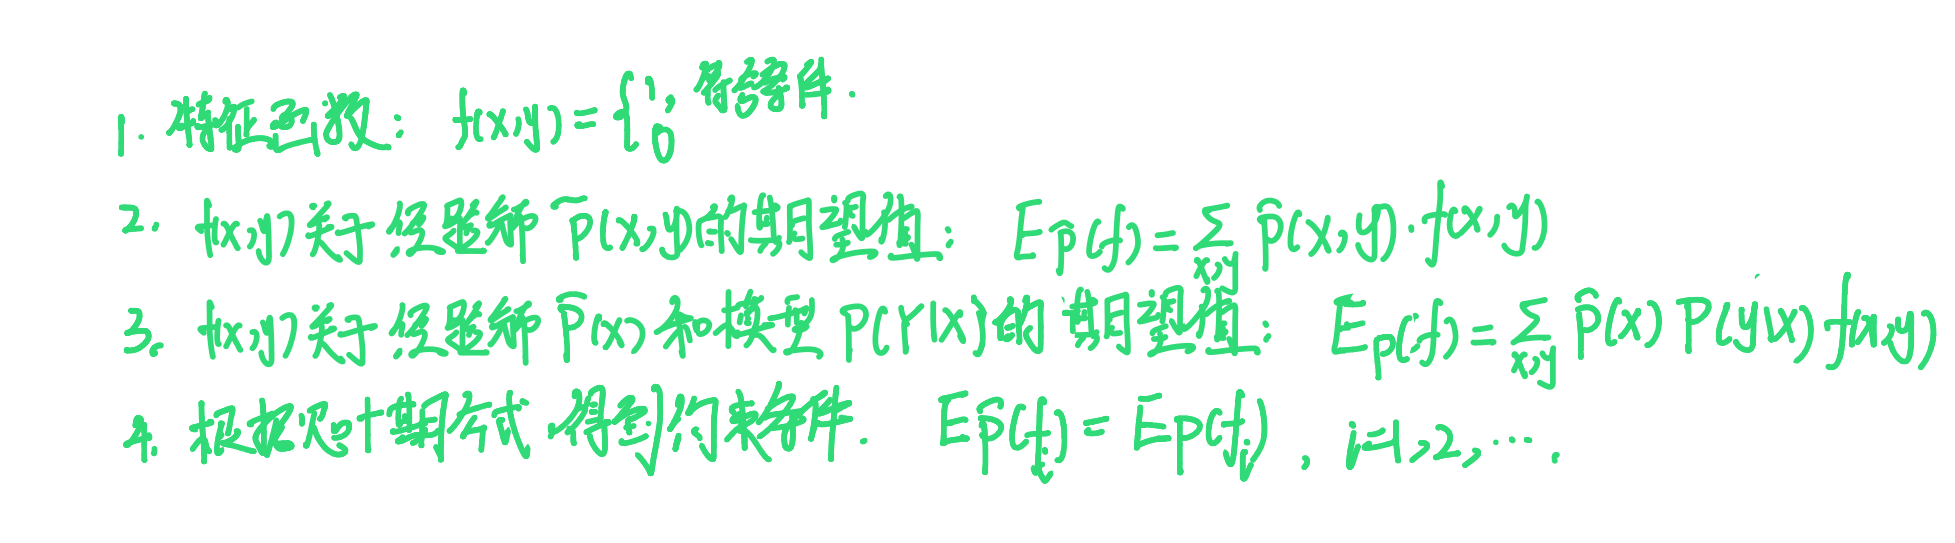 1. 特征函数: f(x,y) = { 1, 符合条件. 0
2. f(x,y) 关于经验分布 p̃(x,y)的期望值: E p̃(f) = Σ x,y p̃(x,y)·f(x,y)
3. f(x,y) 关于经验分布 p̃(x) 和模型 P(Y|X)的期望值: E p(f) = Σ x,y p̃(x) P(y|x) f(x,y)
4. 根据 期 式,得到约束条件. E p̃(fi) = E p(fi), i=1,2,….